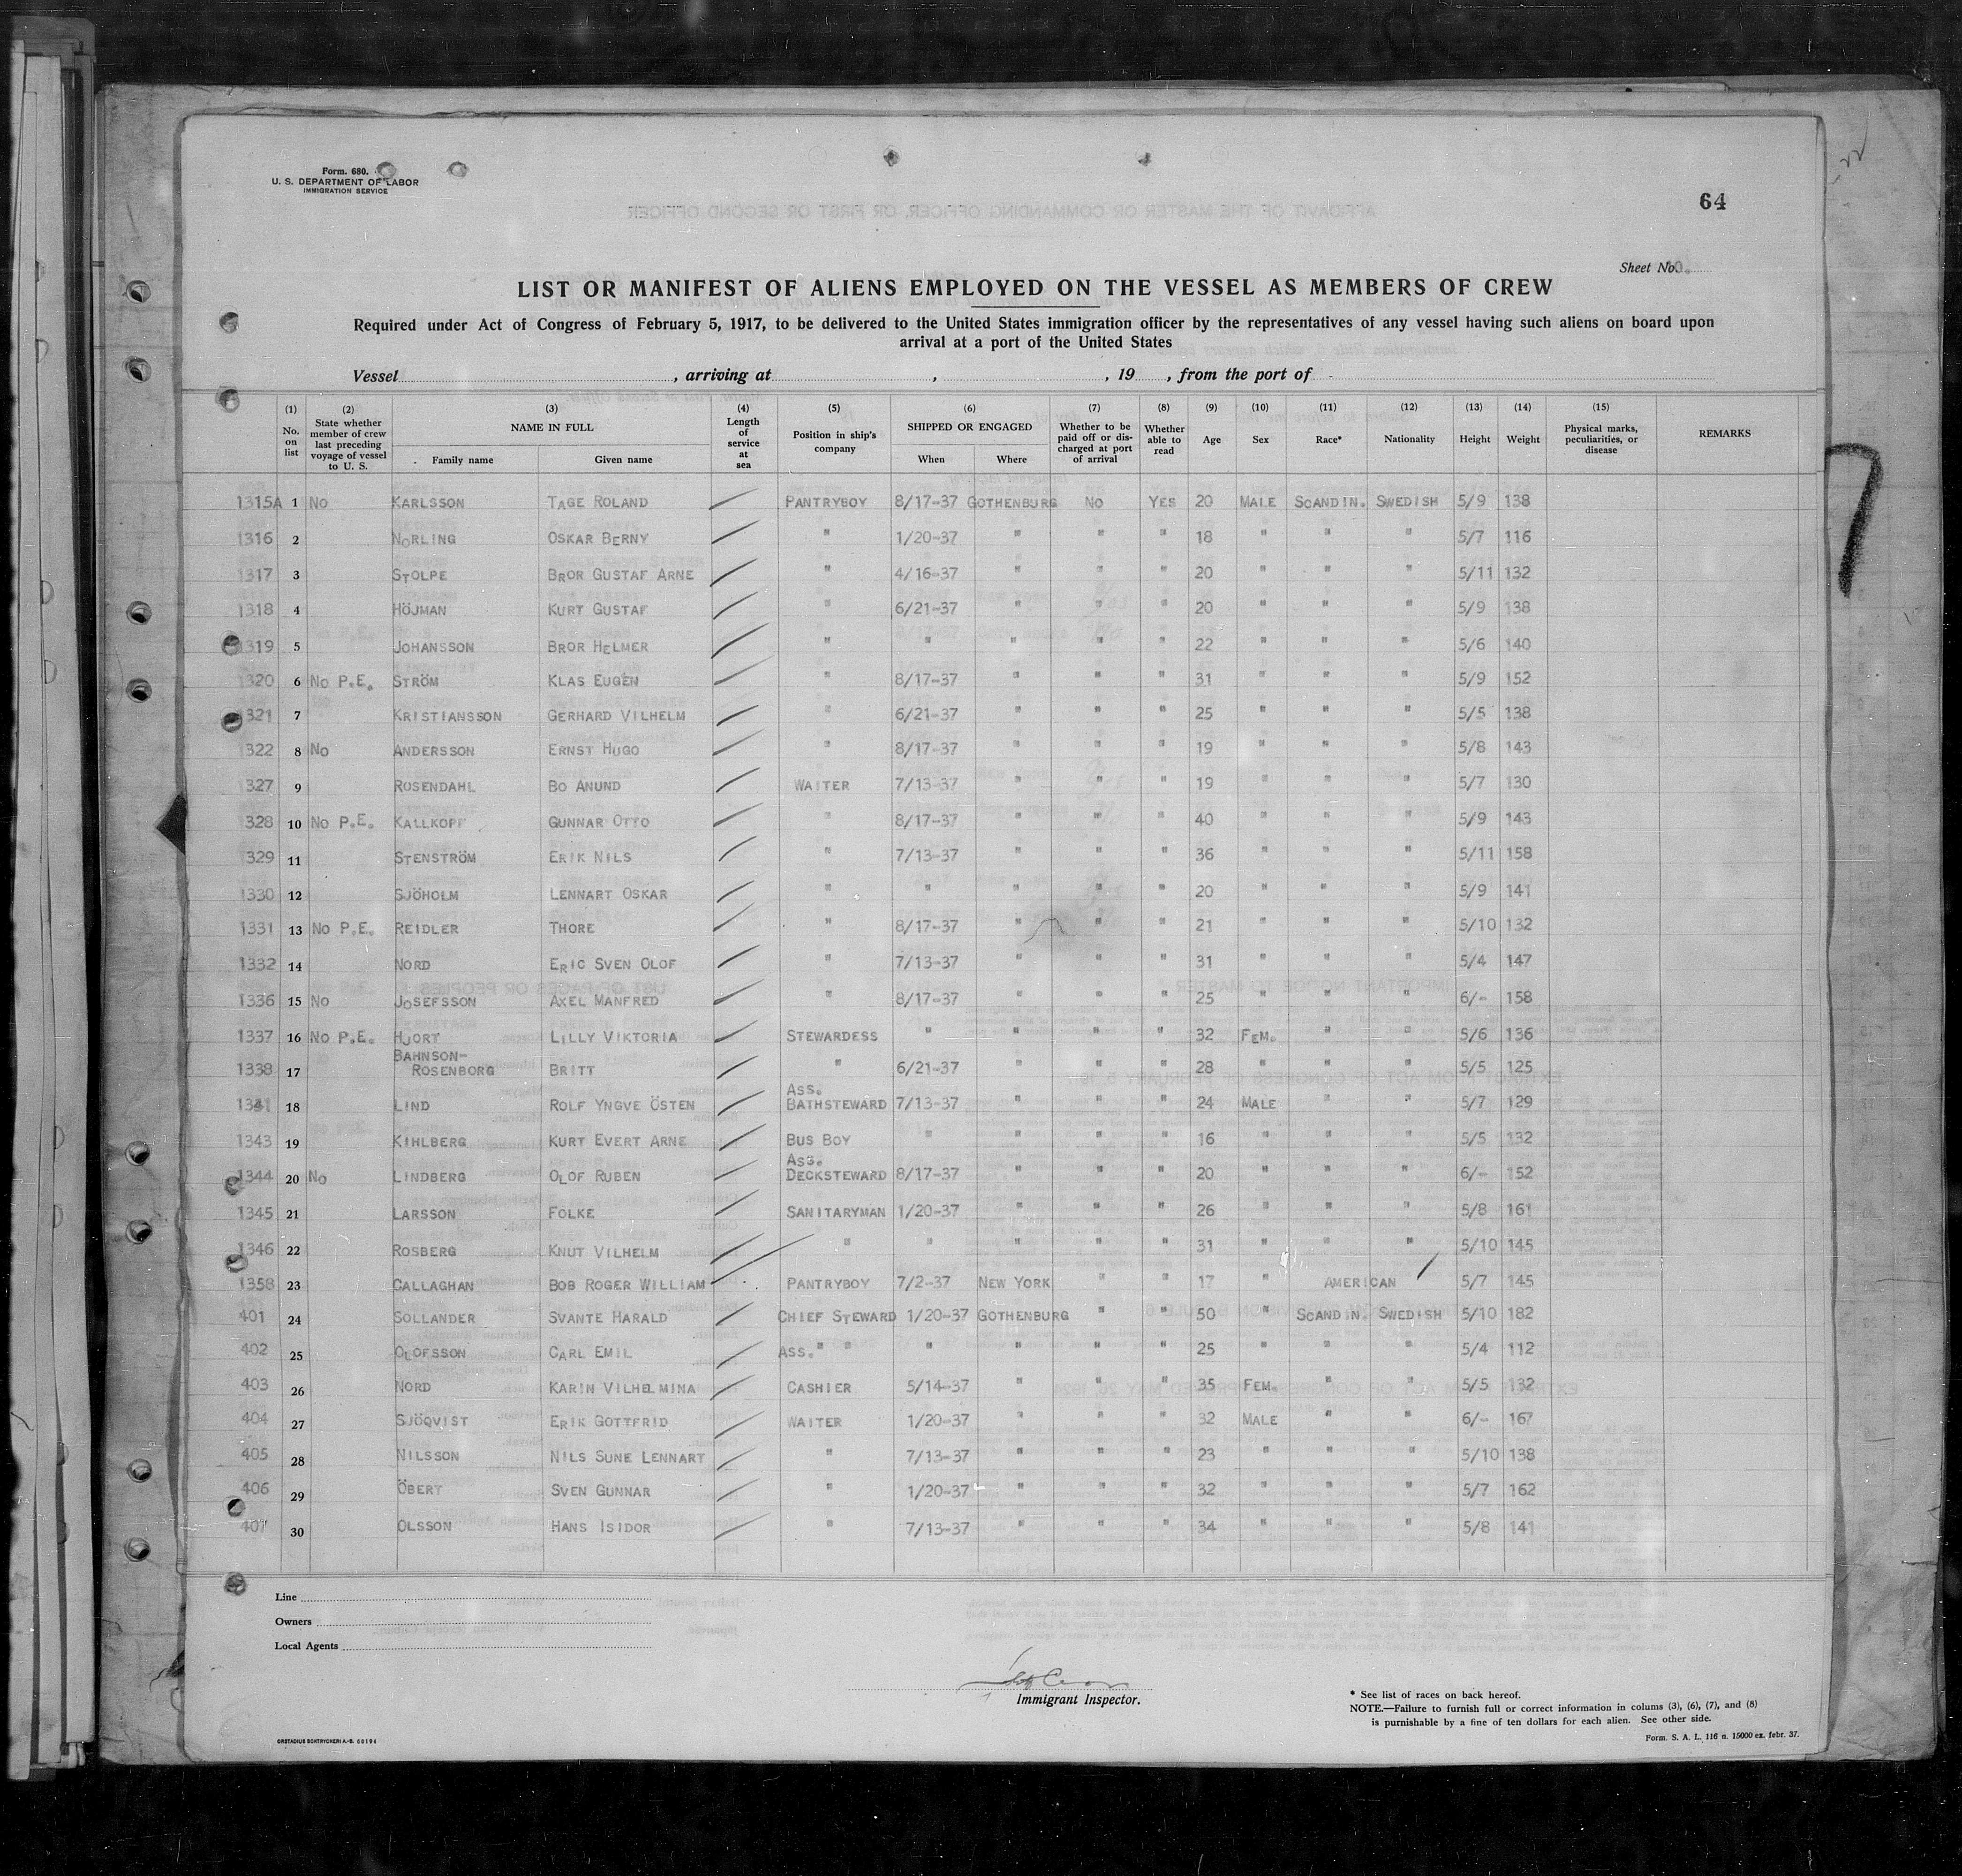 Form. 680.
U. S. DEPARTMENT OF LABOR
IMMIGRATION SERVICE
64
Sheet No.
LIST OR MANIFEST OF ALIENS EMPLOYED ON THE VESSEL AS MEMBERS OF CREW
Required under Act of Congress of February 5, 1917, to be delivered to the United States immigration officer by the representatives of any vessel having such aliens on board upon
arrival at a port of the United States
Vessel , arriving at , , 19 , from the port of
(1) No. on list (2) State whether member of crew last preceding voyage of vessel to U. S. (3) NAME IN FULL Family name Given name (4) Length of service at sea (5) Position in ship's company (6) SHIPPED OR ENGAGED When Where (7) Whether to be paid off or discharged at port of arrival (8) Whether able to read (9) Age (10) Sex (11) Race* (12) Nationality (13) Height (14) Weight (15) Physical marks, peculiarities, or disease REMARKS
1315A 1 No KARLSSON TAGE ROLAND PANTRYBOY 8/17-37 GOTHENBURG NO YES 20 MALE SCANDIN. SWEDISH 5/9 138
1316 2 NORLING OSKAR BERNY " 1/20-37 " " " 18 " " " 5/7 116
1317 3 STOLPE BROR GUSTAF ARNE " 4/16-37 " " " 20 " " " 5/11 132
1318 4 HÖJMAN KURT GUSTAF " 6/21-37 " " " 20 " " " 5/9 138
1319 5 JOHANSSON BROR HELMER " " " " " 22 " " " 5/6 140
1320 6 No P.E. STRÖM KLAS EUGÉN " 8/17-37 " " " 31 " " " 5/9 152
1321 7 KRISTIANSSON GERHARD VILHELM " 6/21-37 " " " 25 " " " 5/5 138
1322 8 No ANDERSSON ERNST HUGO " 8/17-37 " " " 19 " " " 5/8 143
1327 9 ROSENDAHL BO ANUND WAITER 7/13-37 " " " 19 " " " 5/7 130
1328 10 No P.E. KALLKOPF GUNNAR OTTO " 8/17-37 " " " 40 " " " 5/9 143
1329 11 STENSTRÖM ERIK NILS " 7/13-37 " " " 36 " " " 5/11 158
1330 12 SJÖHOLM LENNART OSKAR " " " " " 20 " " " 5/9 141
1331 13 No P.E. REIDLER THORE " 8/17-37 " " " 21 " " " 5/10 132
1332 14 NORD ERIC SVEN OLOF " 7/13-37 " " " 31 " " " 5/4 147
1336 15 No JOSEFSSON AXEL MANFRED " 8/17-37 " " " 25 " " " 6/- 158
1337 16 No P.E. HJORT LILLY VIKTORIA STEWARDESS " " " " 32 FEM. " " 5/6 136
1338 17 BAHNSON-ROSENBORG BRITT " 6/21-37 " " " 28 " " " 5/5 125
1341 18 LIND ROLF YNGVE ÖSTEN ASS. BATHSTEWARD 7/13-37 " " " 24 MALE " " 5/7 129
1343 19 KIHLBERG KURT EVERT ARNE BUS BOY " " " " 16 " " " 5/5 132
1344 20 No LINDBERG OLOF RUBEN ASS. DECKSTEWARD 8/17-37 " " " 20 " " " 6/- 152
1345 21 LARSSON FOLKE SANITARYMAN 1/20-37 " " " 26 " " " 5/8 161
1346 22 ROSBERG KNUT VILHELM " " " " " 31 " " " 5/10 145
1358 23 CALLAGHAN BOB ROGER WILLIAM PANTRYBOY 7/2-37 NEW YORK " " 17 " AMERICAN 5/7 145
401 24 SOLLANDER SVANTE HARALD CHIEF STEWARD 1/20-37 GOTHENBURG " " 50 " SCANDIN. SWEDISH 5/10 182
402 25 OLOFSSON CARL EMIL ASS. " " " " " " 25 " " " 5/4 112
403 26 NORD KARIN VILHELMINA CASHIER 5/14-37 " " " 35 FEM. " " 5/5 132
404 27 SJÖQVIST ERIK GOTTFRID WAITER 1/20-37 " " " 32 MALE " " 6/- 167
405 28 NILSSON NILS SUNE LENNART " 7/13-37 " " " 23 " " " 5/10 138
406 29 ÖBERT SVEN GUNNAR " 1/20-37 " " " 32 " " " 5/7 162
407 30 OLSSON HANS ISIDOR " 7/13-37 " " " 34 " " " 5/8 141
Line
Owners
Local Agents
Immigrant Inspector.
* See list of races on back hereof.
NOTE.—Failure to furnish full or correct information in colums (3), (6), (7), and (8)
is punishable by a fine of ten dollars for each alien. See other side.
ORSTADIUS BOKTRYCKERI A.-B. 60194
Form. S. A. L. 116 n. 15000 ex. febr. 37.